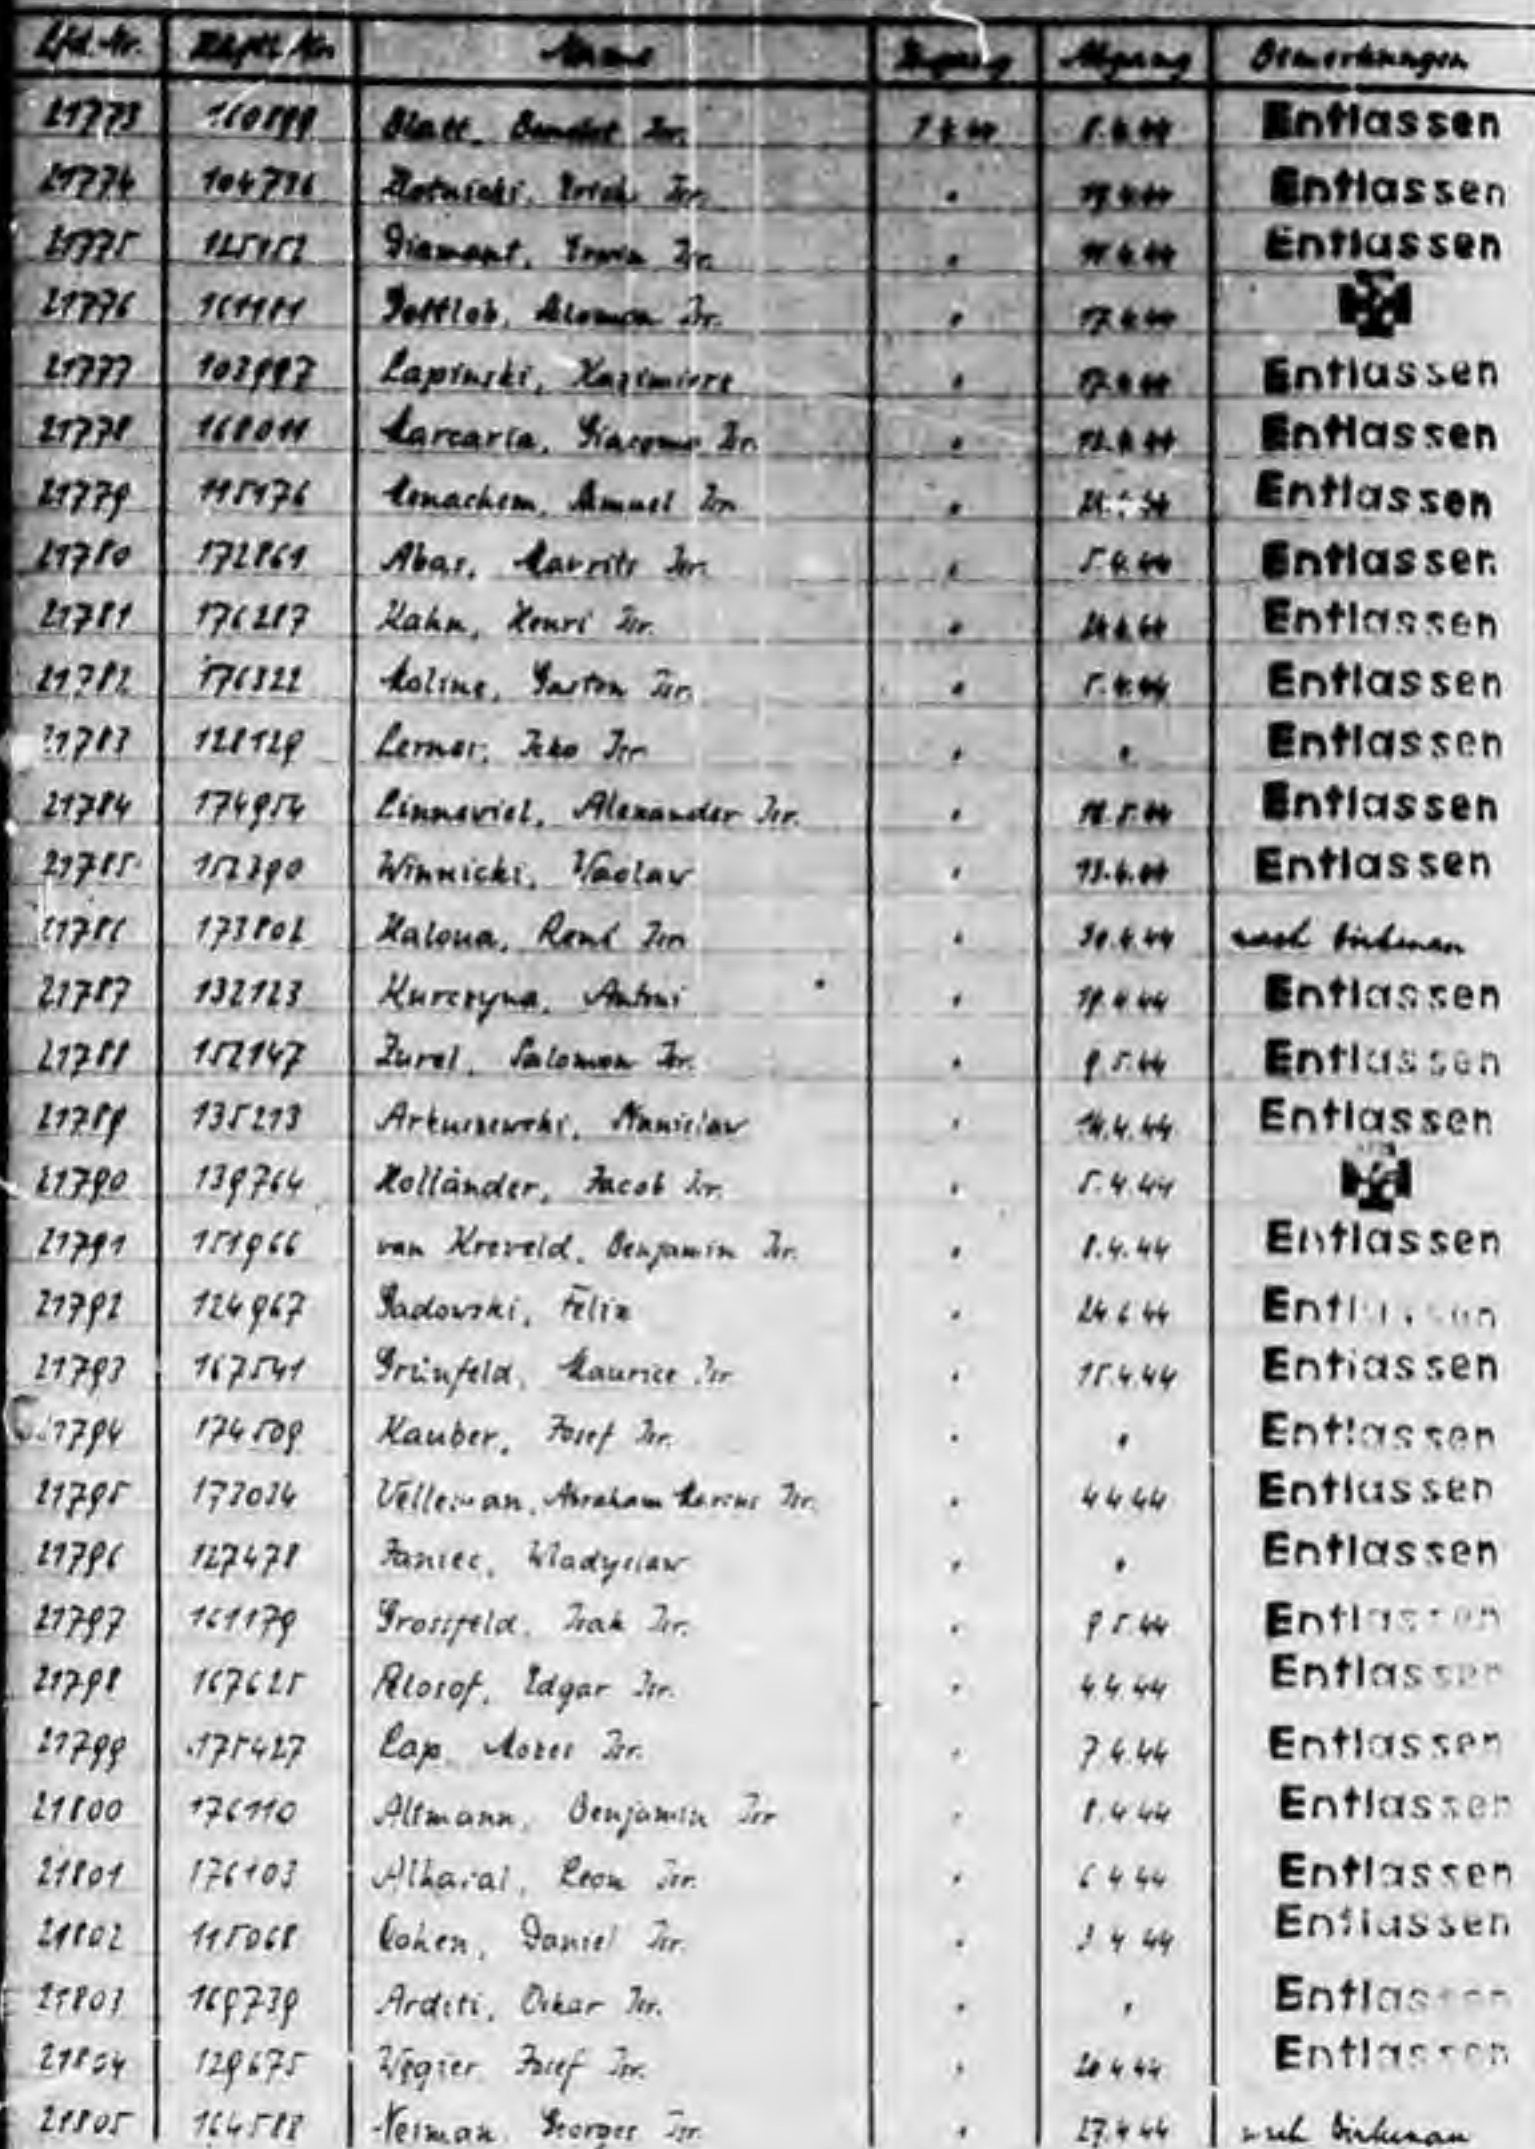 Lfd. Nr. Häftl. Nr. Name Zugang Abgang Bemerkungen
21773 160899 Blatt, Isr. Entlassen
21774 104736 Zlotnicki, Erich Isr. " 19.4.44 Entlassen
21775 Diamant, Erwin Isr. " Entlassen
21776 Gottlob, Salomon Isr. " 17.4.44
21777 Lapinski, Kazimierz " 17.4.44 Entlassen
21778 168011 Marcaria, Giacomo Isr. " Entlassen
21779 115176 Menachem, Samuel Isr. " Entlassen
21780 172861 Abas, Maurits Isr. " 5.4.44 Entlassen
21781 176287 Kahn, Henri Isr. " Entlassen
21782 176322 Moline, Gaston Isr. " 5.4.44 Entlassen
21783 128129 Lerner, Isr. " " Entlassen
21784 174954 Linneviel, Alexander Isr. " Entlassen
21785 152390 Winnicki, Waclaw " 13.4.44 Entlassen
21786 173802 Haloua, René Isr. " 30.4.44 nach Birkenau
21787 132123 Kurczyna, Antoni " 19.4.44 Entlassen
21788 152147 Zurel, Salomon Isr. " 9.5.44 Entlassen
21789 135213 Artuszewski, Stanislaw " 14.4.44 Entlassen
21790 139764 Holländer, Jacob Isr. " 5.4.44
21791 151966 van Kreveld, Benjamin Isr. " 8.4.44 Entlassen
21792 124967 Sadowski, Felix " 24.6.44 Entlassen
21793 167541 Grünfeld, Maurice Isr. " 15.4.44 Entlassen
21794 174509 Kauber, Josef Isr. " " Entlassen
21795 173034 Velleman, Abraham Marcus Isr. " 4.4.44 Entlassen
21796 127478 Janiec, Wladyslaw " " Entlassen
21797 161179 Grossfeld, Isak Isr. " 9.5.44 Entlassen
21798 167625 Filosof, Edgar Isr. " 4.4.44 Entlassen
21799 175427 Cap, Mozes Isr. " 7.4.44 Entlassen
21800 176110 Altmann, Benjamin Isr. " 8.4.44 Entlassen
21801 176103 Alhaial, Leon Isr. " 6.4.44 Entlassen
21802 115068 Cohen, Daniel Isr. " 4.44 Entlassen
21803 169739 Arditi, Oskar Isr. " " Entlassen
21804 129675 Wegier, Josef Isr. " 20.4.44 Entlassen
21805 164588 Neiman, Georges Isr. " 27.4.44 nach Birkenau